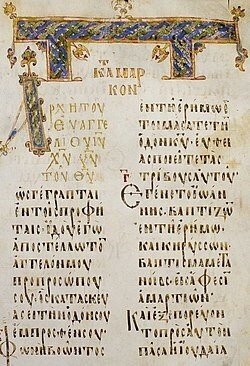 ΚΑΤΑ ΜΑΡ
ΚΟΝ
ΑΡΧΗ ΤΟΥ
ΕΥΑΓΓΕ
ΛΙΟΥ ΙΥ
ΧΥ ΥΥ
ΤΟΥ ΘΥ
ΩΣ ΓΕΓΡΑΠΤΑΙ
ΕΝ ΤΟΙΣ ΠΡΟΦΗ
ΤΑΙΣ· ΙΔΟΥ ΕΓΩ
ΑΠΟΣΤΕΛΛΩ ΤΟΝ
ΑΓΓΕΛΟΝ ΜΟΥ
ΠΡΟ ΠΡΟΣΩΠΟΥ
ΣΟΥ· ΟΣ ΚΑΤΑΣΚΕΥ
ΑΣΕΙ ΤΗΝ ΟΔΟΝ ΣΟΥ
ΕΜΠΡΟΣΘΕΝ ΣΟΥ·
ΦΩΝΗ ΒΟΩΝΤΟΣ
ΕΝ ΤΗ ΕΡΗΜΩ· ΕΤΟΙ
ΜΑΣΑΤΕ ΤΗΝ
ΟΔΟΝ ΚΥ· ΕΥΘΕΙ
ΑΣ ΠΟΙΕΙΤΕ ΤΑΣ
ΤΡΙΒΟΥΣ ΑΥΤΟΥ·
ΕΓΕΝΕΤΟ ΙΩΑΝ
ΝΗΣ ΒΑΠΤΙΖΩΝ
ΕΝ ΤΗ ΕΡΗΜΩ·
ΚΑΙ ΚΗΡΥΣΣΩΝ
ΒΑΠΤΙΣΜΑ ΜΕΤΑ
ΝΟΙΑΣ ΕΙΣ ΑΦΕΣΙΝ
ΑΜΑΡΤΙΩΝ·
ΚΑΙ ΕΞΕΠΟΡΕΥΕ
ΤΟ ΠΡΟΣ ΑΥΤΟΝ
ΠΑΣΑ Η ΙΟΥΔΑΙΑ